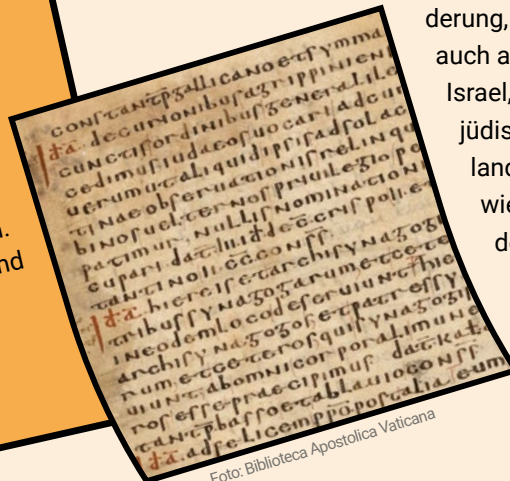 derung,
auch a
Israel,
jüdis
land
wie
de
.
nd
constantp̄ gallicano et symma
id a decurionibus agrippinien
cunctis ordinibus generali le
cedimus iudaeos uocari ad cur
uerum ut aliquid ipsis ad solac
tinae obseruationis relinqu
binos uel ternos priuilegio pe
petimur nullis nominationi
cupari dat iii id dec crispo
tantino ii cc conss
id a hiereis et archisynagogi
tribus synagogarum et cete
in eodem loco deseruiunt hie
archisynagogos et patres sy
rum et ceteros qui synagogi
uiunt ab omni corporali mune
ros esse praecipimus dat kal
tanp̄ basso et ablauio conss
id a ad felicem pp̄o post alia eum
Foto: Biblioteca Apostolica Vaticana